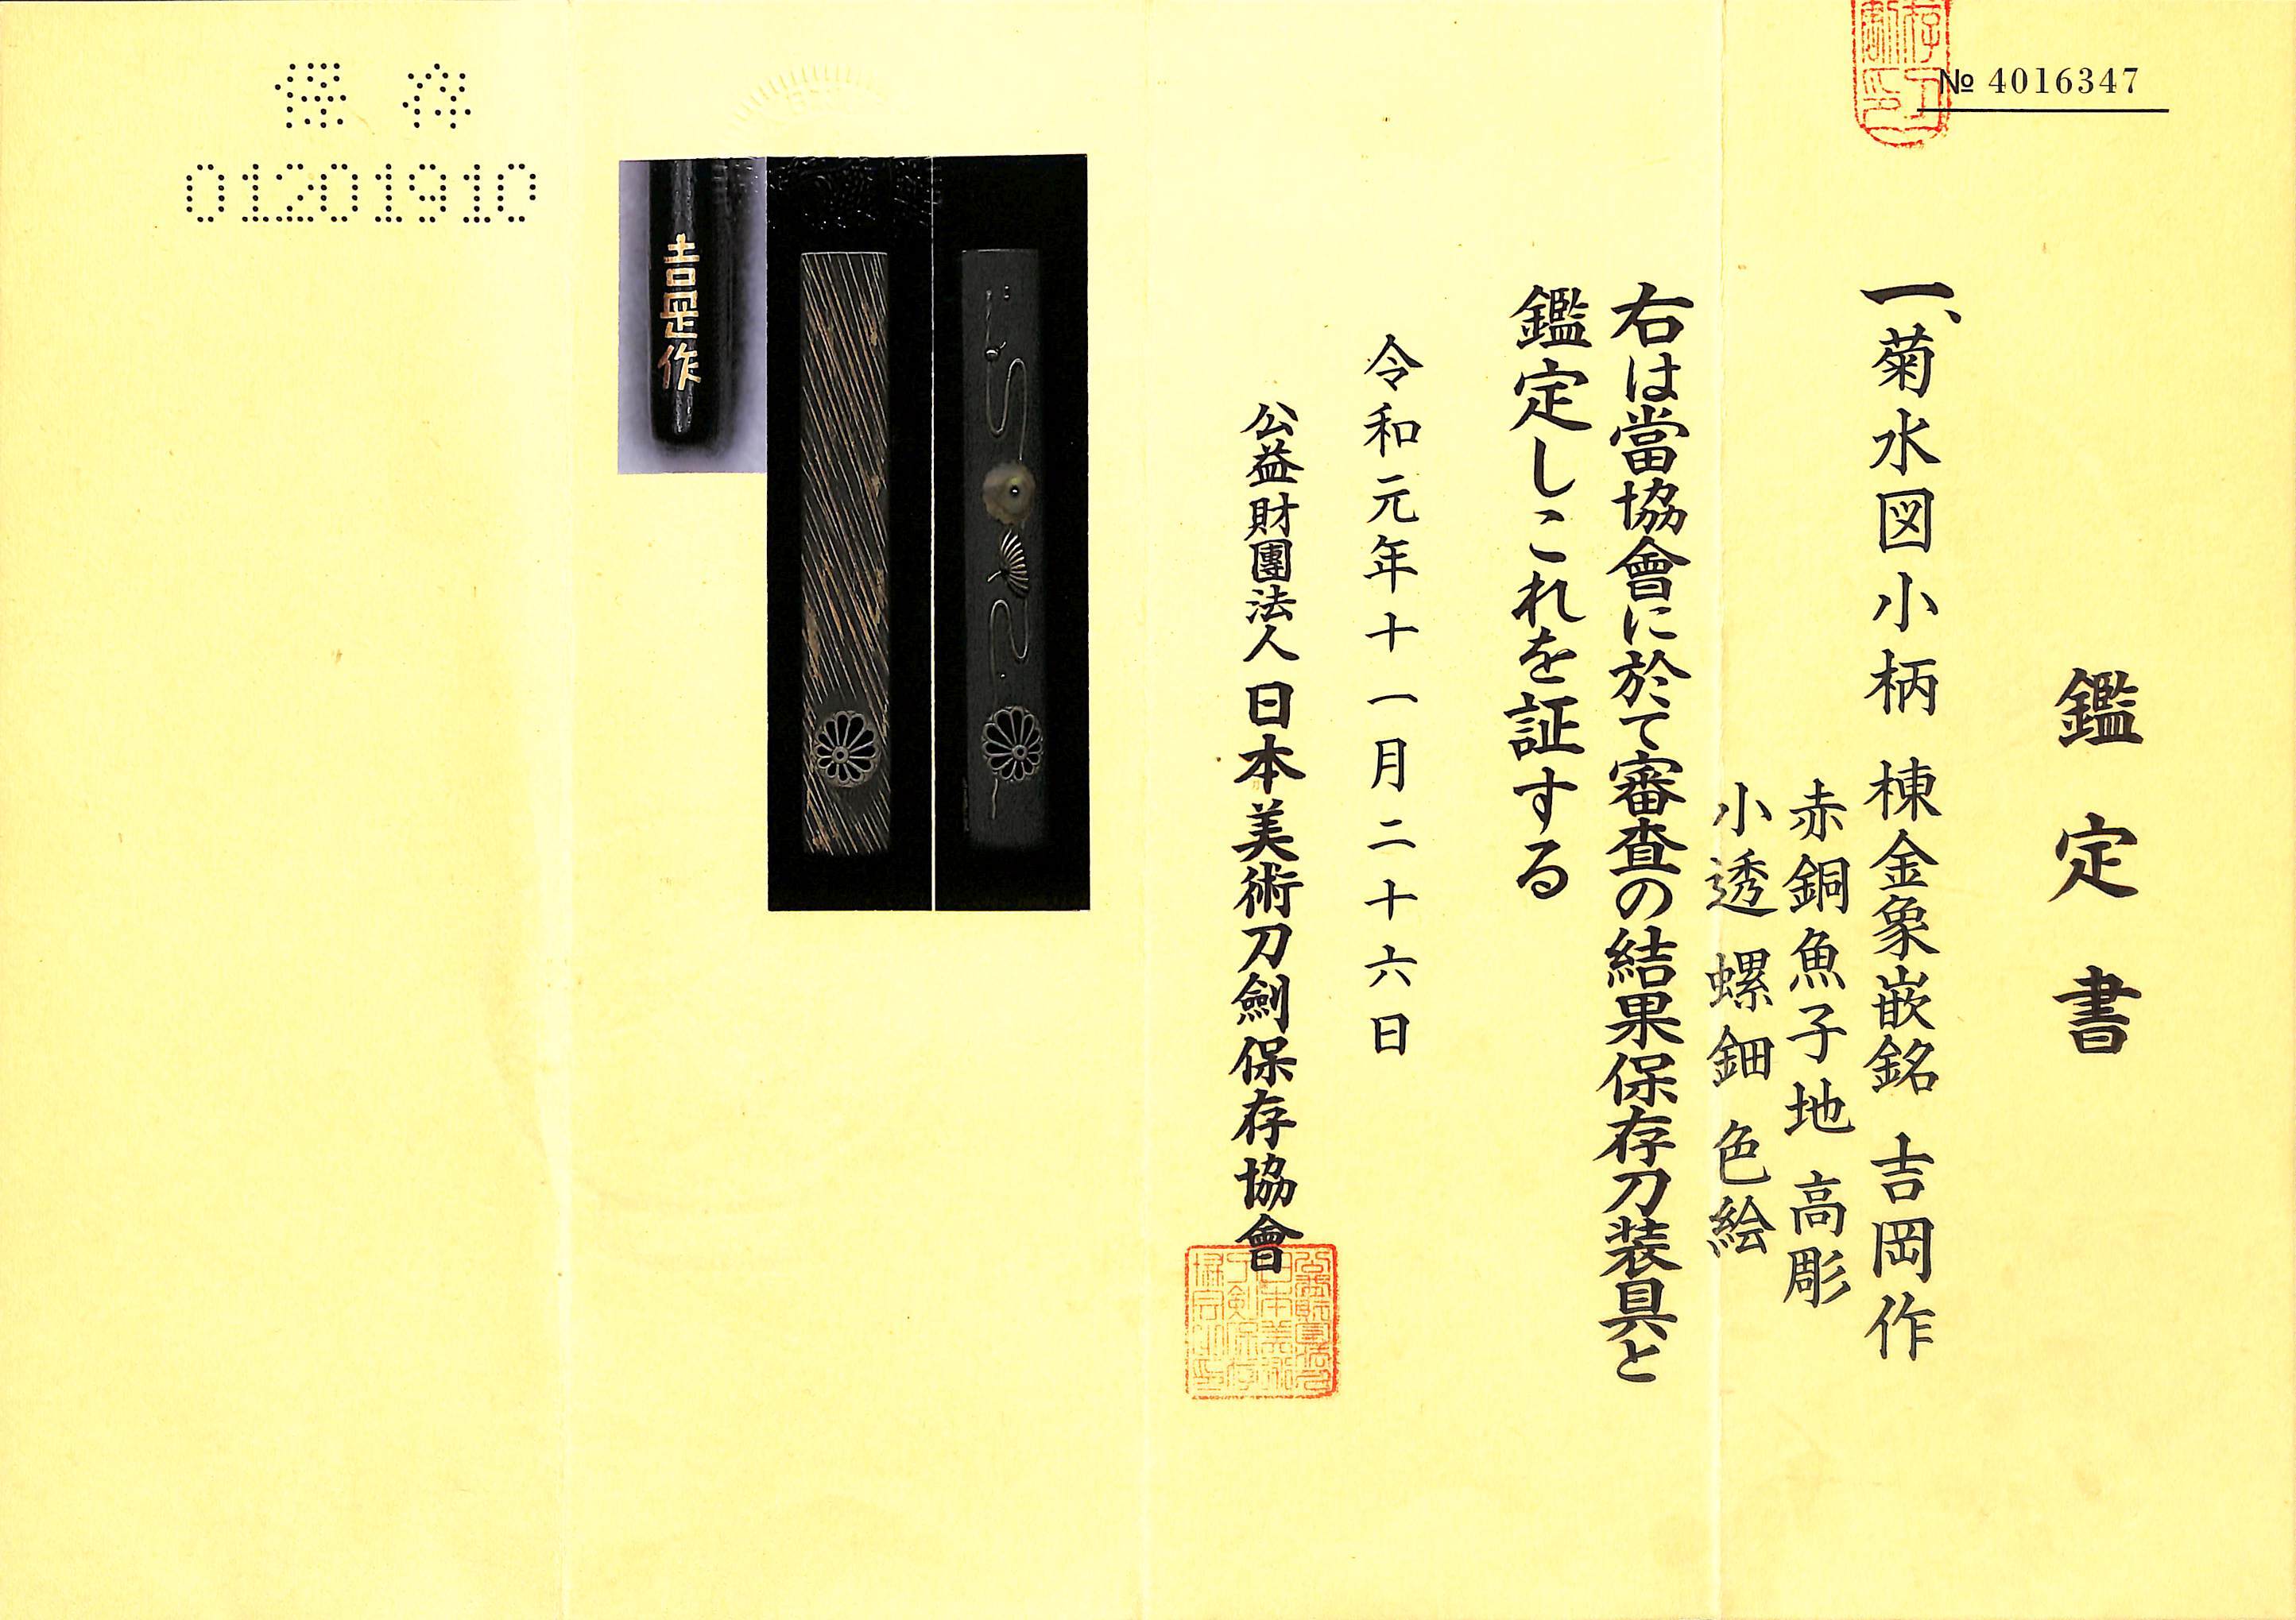 № 4016347
鑑定書
一、菊水図小柄 棟金象嵌銘 吉岡作
赤銅魚子地 高彫
小透 螺鈿 色絵
右は當協會に於て審査の結果保存刀装具と
鑑定しこれを証する
令和元年十一月二十六日
公益財團法人 日本美術刀劍保存協會
吉岡作
保存
01201910